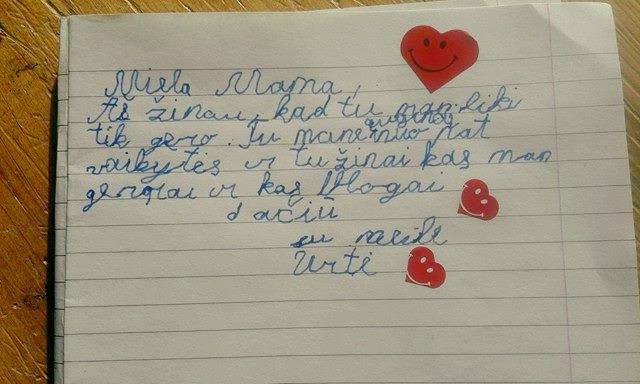 Miela Mama,
Aš žinau, kad tu man liki
tik gero. Tu mane auginai nuo pat
vaikytės ir tu žinai kas man
geriai ir kas blogai
dačiū
su meile
Urtė